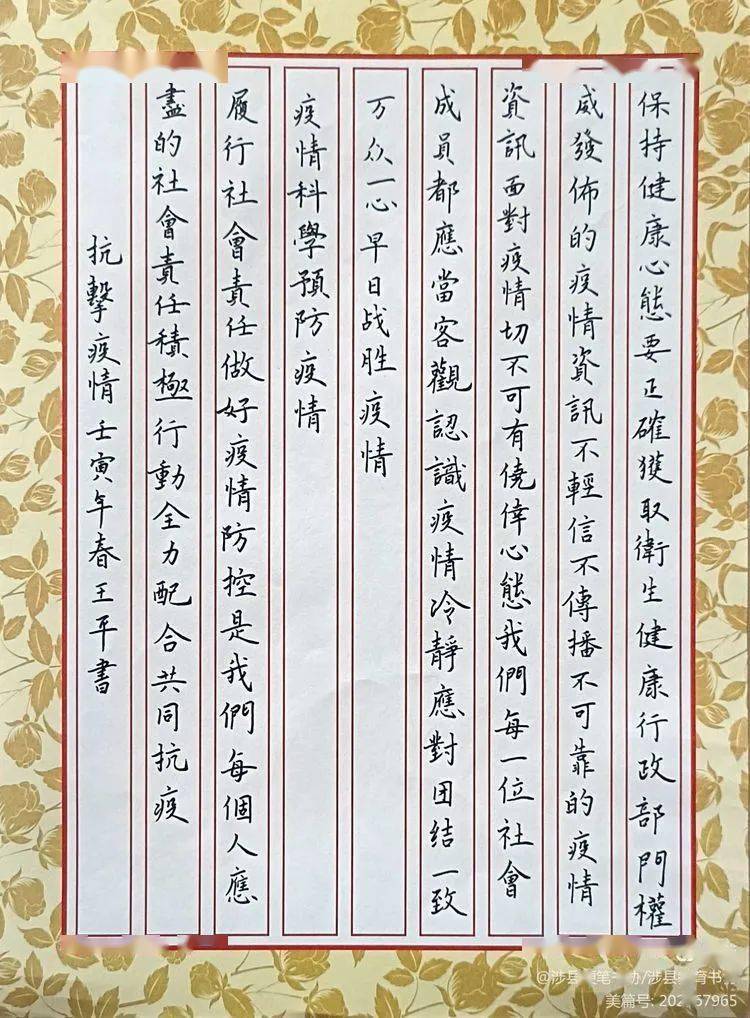 保持健康心態要正確獲取衛生健康行政部門權
威發佈的疫情資訊不輕信不傳播不可靠的疫情
資訊面對疫情切不可有僥倖心態我們每一位社會
成員都應當客觀認識疫情冷靜應對团结一致
万众一心早日战胜疫情
疫情科學預防疫情
履行社會責任做好疫情防控是我們每個人應
盡的社會責任積極行動全力配合共同抗疫
抗擊疫情壬寅年春王平書
@涉县 笔 办/涉县 书
美篇号: 202 57965